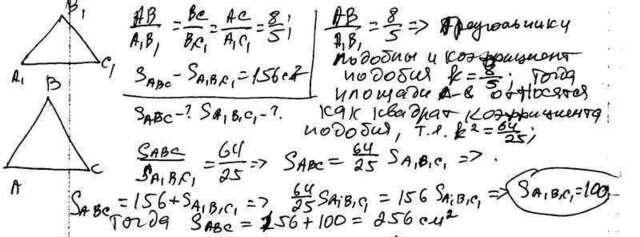 B₁
A₁ C₁
B
A C
AB/A₁B₁ = BC/B₁C₁ = AC/A₁C₁ = 8/5;
S_ABC − S_A₁B₁C₁ = 156 см²
S_ABC − ? S_A₁B₁C₁ − ?
AB/A₁B₁ = 8/5 => Треугольники
подобны и коэффициент
подобия k = 8/5; тогда
площади Δ-в относятся
как квадрат коэффициента
подобия, т.е. k² = 64/25;
S_ABC/S_A₁B₁C₁ = 64/25 => S_ABC = 64/25 S_A₁B₁C₁ => .
S_ABC = 156 + S_A₁B₁C₁ => 64/25 S_A₁B₁C₁ = 156 S_A₁B₁C₁ => S_A₁B₁C₁ = 100
Тогда S_ABC = 156 + 100 = 256 см²